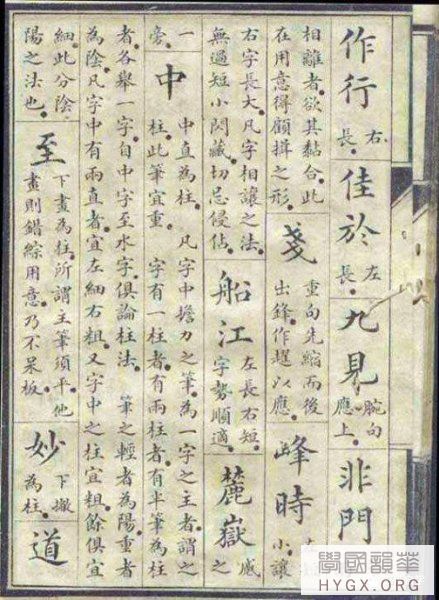 作行
右
長。
佳於
左
長。
九見
腕向
應上。
非門
相離者欲其黏合此
在用意得顧揖之形。
戔
重向先縮而後
出鋒作趯以應。
峰時
小讓
右字長大凡字相讓之法。
無過短小閃藏切忌侵佔。
船江
左長右短。
字勢順適。
麓嶽
之
一
旁。
中
中直為柱。凡字中擔力之筆為一字之主者謂之
柱。此筆宜重。字有一柱者有兩柱者有半筆為柱
者各舉一字。自中字至水字俱論柱法。筆之輕者為陽重者
為陰。凡字中有兩直者宜左細右粗。又字中之柱宜粗。餘俱宜
細。此分陰
陽之法也。
至
下畫為柱。所謂主筆須平。他
畫則錯綜用意。乃不呆板。
妙
下撇
為柱。
道
學國韻華
HYGX.ORG